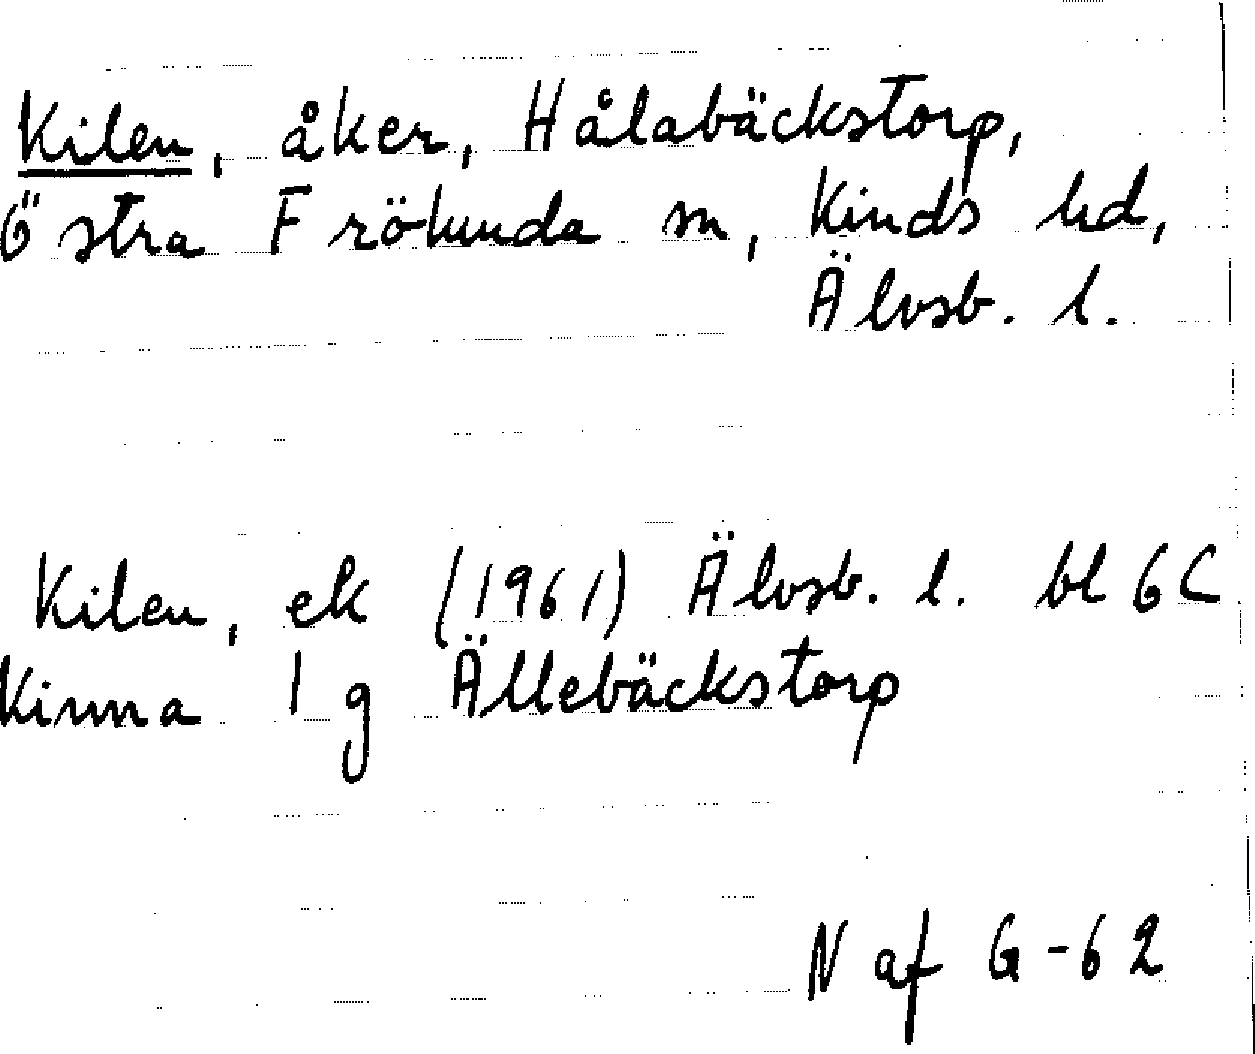 Kilen, åker, Hålabäckstorp,
Östra Frökunda sn, Kinds hd,
Älvsb. l.
Kilen, ek (1961) Älvsb. l. bl 6C
Kinna 1 g Ällebäckstorp
N af G-62